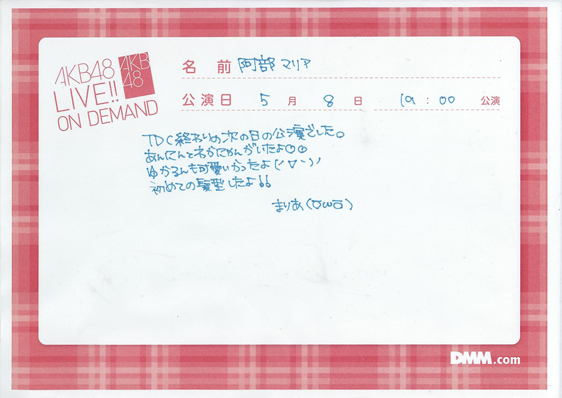 AKB48
LIVE!!
ON DEMAND
AKB
48
名前 阿部マリア
公演日 5月8日 19:00 公演
TDC終わりの次の日の公演でした。
あんにんとわかにゃんがいたよ☺☺
ゆかるんも可愛いかったよ(′▽`)ノ
初めての髪型したよ!!
まりあ(▽ω▽)
DMM.com